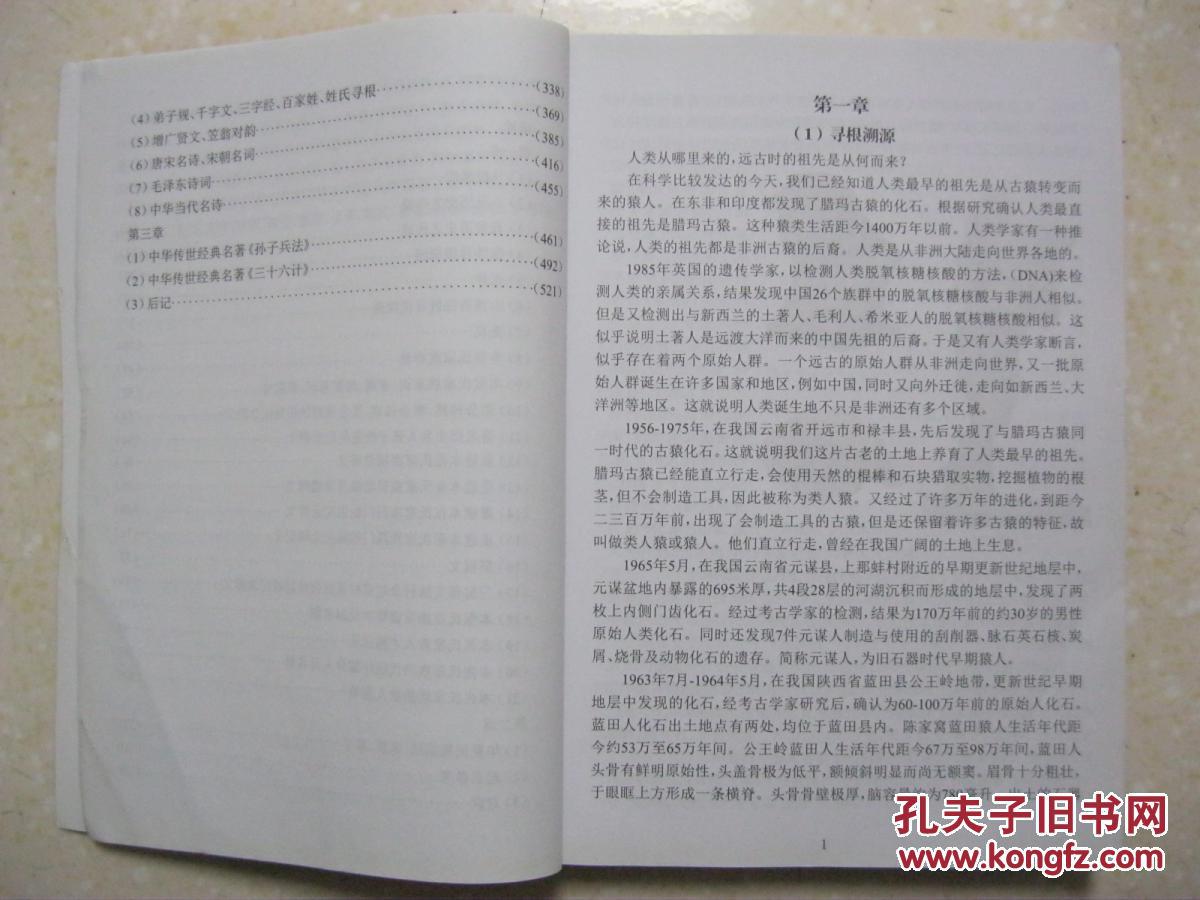 (4) 弟子规、千字文、三字经、百家姓、姓氏寻根……(338)
(5) 增广贤文、笠翁对韵……(369)
(6) 唐宋名诗、宋朝名词……(385)
(7) 毛泽东诗词……(416)
(8) 中华当代名诗……(455)
第三章
(1) 中华传世经典名著《孙子兵法》……(461)
(2) 中华传世经典名著《三十六计》……(492)
(3) 后记……(521)
第一章
(1) 寻根溯源
人类从哪里来的，远古时的祖先是从何而来？
在科学比较发达的今天，我们已经知道人类最早的祖先是从古猿转变而
来的猿人。在东非和印度都发现了腊玛古猿的化石。根据研究确认人类最直
接的祖先是腊玛古猿。这种猿类生活距今1400万年以前。人类学家有一种推
论说，人类的祖先都是非洲古猿的后裔。人类是从非洲大陆走向世界各地的。
1985年英国的遗传学家，以检测人类脱氧核糖核酸的方法，(DNA)来检
测人类的亲属关系，结果发现中国26个族群中的脱氧核糖核酸与非洲人相似。
但是又检测出与新西兰的土著人、毛利人、希米亚人的脱氧核糖核酸相似。这
似乎说明土著人是远渡大洋而来的中国先祖的后裔。于是又有人类学家断言，
似乎存在着两个原始人群。一个远古的原始人群从非洲走向世界，又一批原
始人群诞生在许多国家和地区，例如中国，同时又向外迁徙，走向如新西兰、大
洋洲等地区。这就说明人类诞生地不只是非洲还有多个区域。
1956-1975年，在我国云南省开远市和禄丰县，先后发现了与腊玛古猿同
一时代的古猿化石。这就说明我们这片古老的土地上养育了人类最早的祖先。
腊玛古猿已经能直立行走，会使用天然的棍棒和石块猎取实物，挖掘植物的根
茎，但不会制造工具，因此被称为类人猿。又经过了许多万年的进化，到距今
二三百万年前，出现了会制造工具的古猿，但是还保留着许多古猿的特征，故
叫做类人猿或猿人。他们直立行走，曾经在我国广阔的土地上生息。
1965年5月，在我国云南省元谋县，上那蚌村附近的早期更新世纪地层中，
元谋盆地内暴露的695米厚，共4段28层的河湖沉积而形成的地层中，发现了两
枚上内侧门齿化石。经过考古学家的检测，结果为170万年前的约30岁的男性
原始人类化石。同时还发现7件元谋人制造与使用的刮削器、脉石英石核、炭
屑、烧骨及动物化石的遗存。简称元谋人，为旧石器时代早期猿人。
1963年7月-1964年5月，在我国陕西省蓝田县公王岭地带，更新世纪早期
地层中发现的化石，经考古学家研究后，确认为60-100万年前的原始人化石。
蓝田人化石出土地点有两处，均位于蓝田县内。陈家窝蓝田猿人生活年代距
今约53万至65万年间。公王岭蓝田人生活年代距今67万至98万年间，蓝田人
头骨有鲜明原始性，头盖骨极为低平，额倾斜明显而尚无额窦。眉骨十分粗壮，
于眼眶上方形成一条横脊。头骨骨壁极厚，脑容量约为780毫升。出土的石器
1
孔夫子旧书网
www.kongfz.com